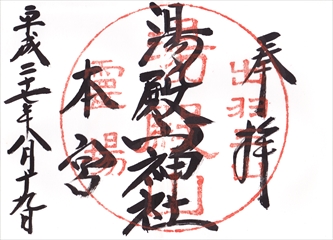 奉拝
出羽
湯殿山神社
湯殿山
本宮
霊場
平成二十一年八月十九日